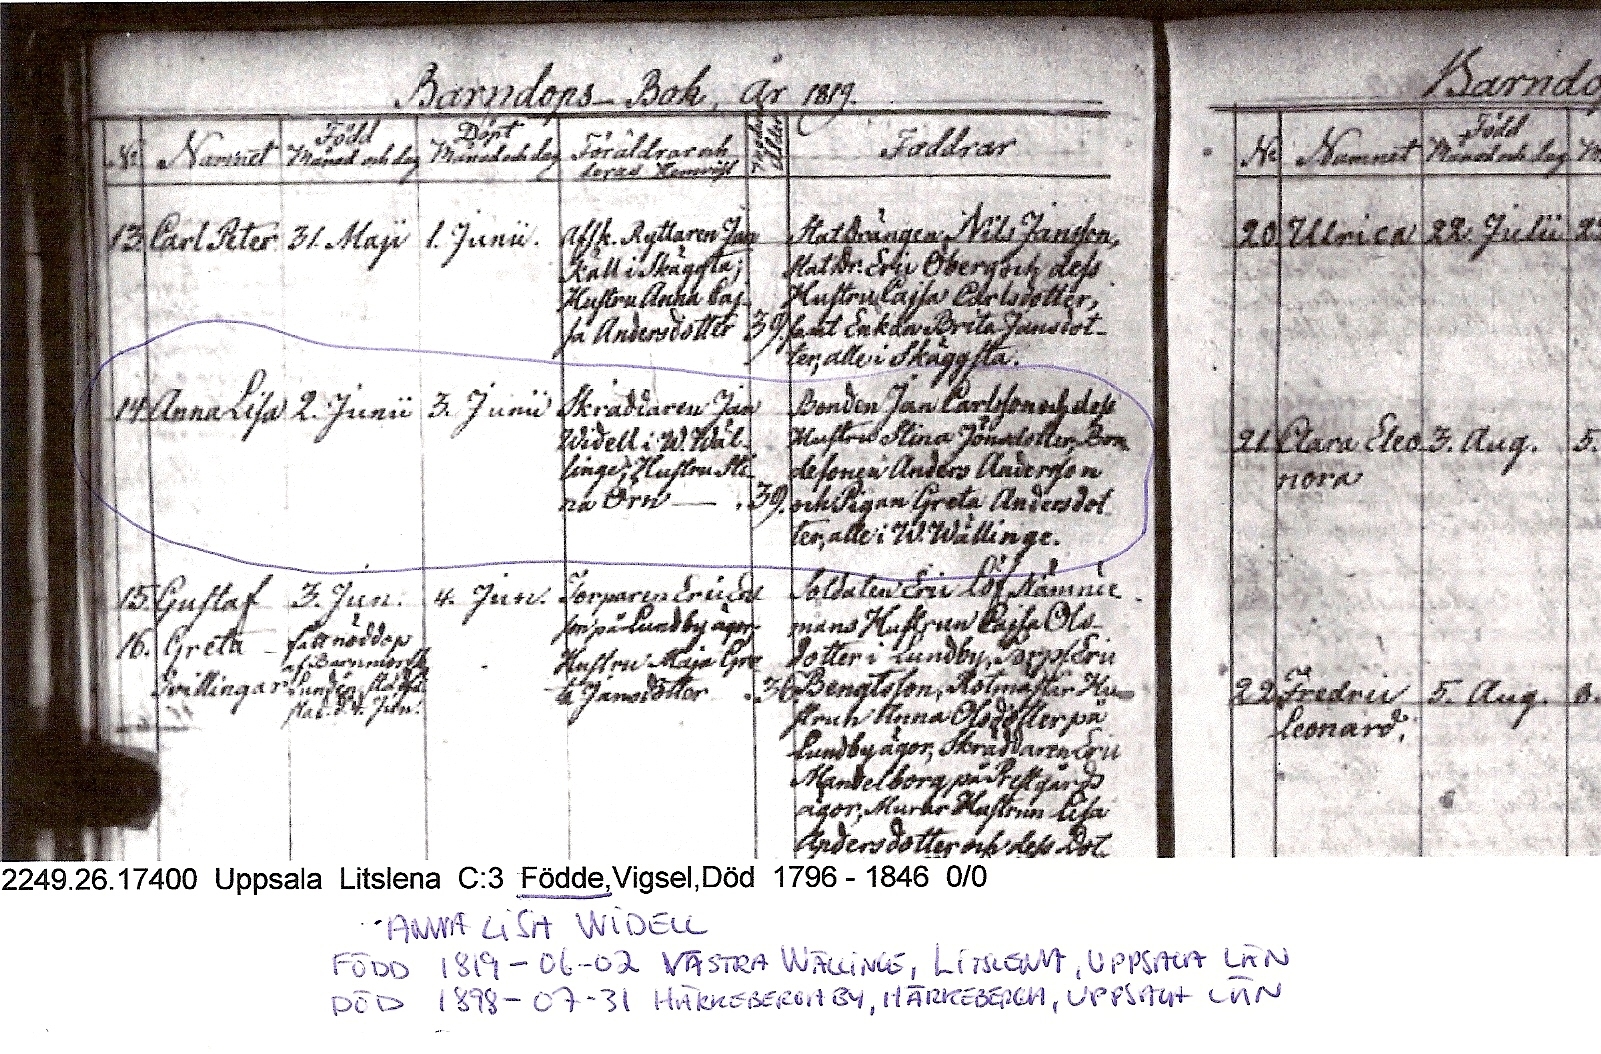 Barndops-Bok, År 1819.
No Namnet Född Månad och dag Döpt Månad och dag Föräldrar och deras Hemvist Moders ålder Faddrar
13. Carl Peter 31. Maji 1. Junii. Afsk. Ryttaren Jan
Käll i Skäggsta;
Hustru Anna Caj-
sa Andersdotter 39.
Statdrängen Nils Jansson,
Statdr. Eric Öberg och dess
Hustru Cajsa Carlsdotter,
samt Enkan Brita Jansdot-
ter, alle i Skäggsta.
14. Anna Lisa 2. Junii 3. Junii Skräddaren Jan
Widell i W. Wäl-
linge; Hustru Sti-
na Örn — . 39.
Bonden Jan Carlsson och dess
Hustru Stina Jönsdotter, Bon
desonen Anders Andersson
och Pigan Greta Andersdot
ter, alle i W. Wällinge.
15. Gustaf 3. Jun. 4. Jun. Torparen Eric Ers
son på Lundby ägor
16. Greta
Tvillingar
Hustru Maja Gre
ta Jansdotter . 36.
Soldaten Eric Löf, Nämnde
mans Hustrun Cajsa Ols-
dotter i Lundby, Torp. Eric
Bengtsson, Rotmästar Hu-
strun Anna Olsdotter på
Lundby ägor, Skräddaren Eric
Mandelborg på Prestgårds
ägor, Murar Hustrun Lisa
Andersdotter och dess Dot
Barndo
No Namnet Född Månad och dag
20. Ulrica 22. Julii
21. Clara Eleo 3. Aug. 5.
nora
22. Fredric 5. Aug.
Leonard.
2249.26.17400 Uppsala Litslena C:3 Födde,Vigsel,Död 1796 - 1846 0/0
ANNA LISA WIDELL
FÖDD 1819-06-02 VÄSTRA WÄLLINGE, LITSLENA, UPPSALA LÄN
DÖD 1898-07-31 HÄRKEBERGA BY, HÄRKEBERGA, UPPSALA LÄN